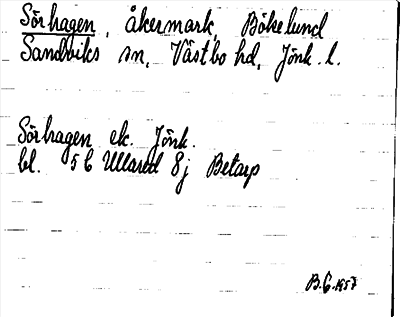 Sörhagen, åkermark, Bökelund
Sandviks sn, Västbo hd, Jönk. l.
Sörhagen ek. Jönk.
bl. 5 C Ullared 8 j Betarp
B.G. 1957